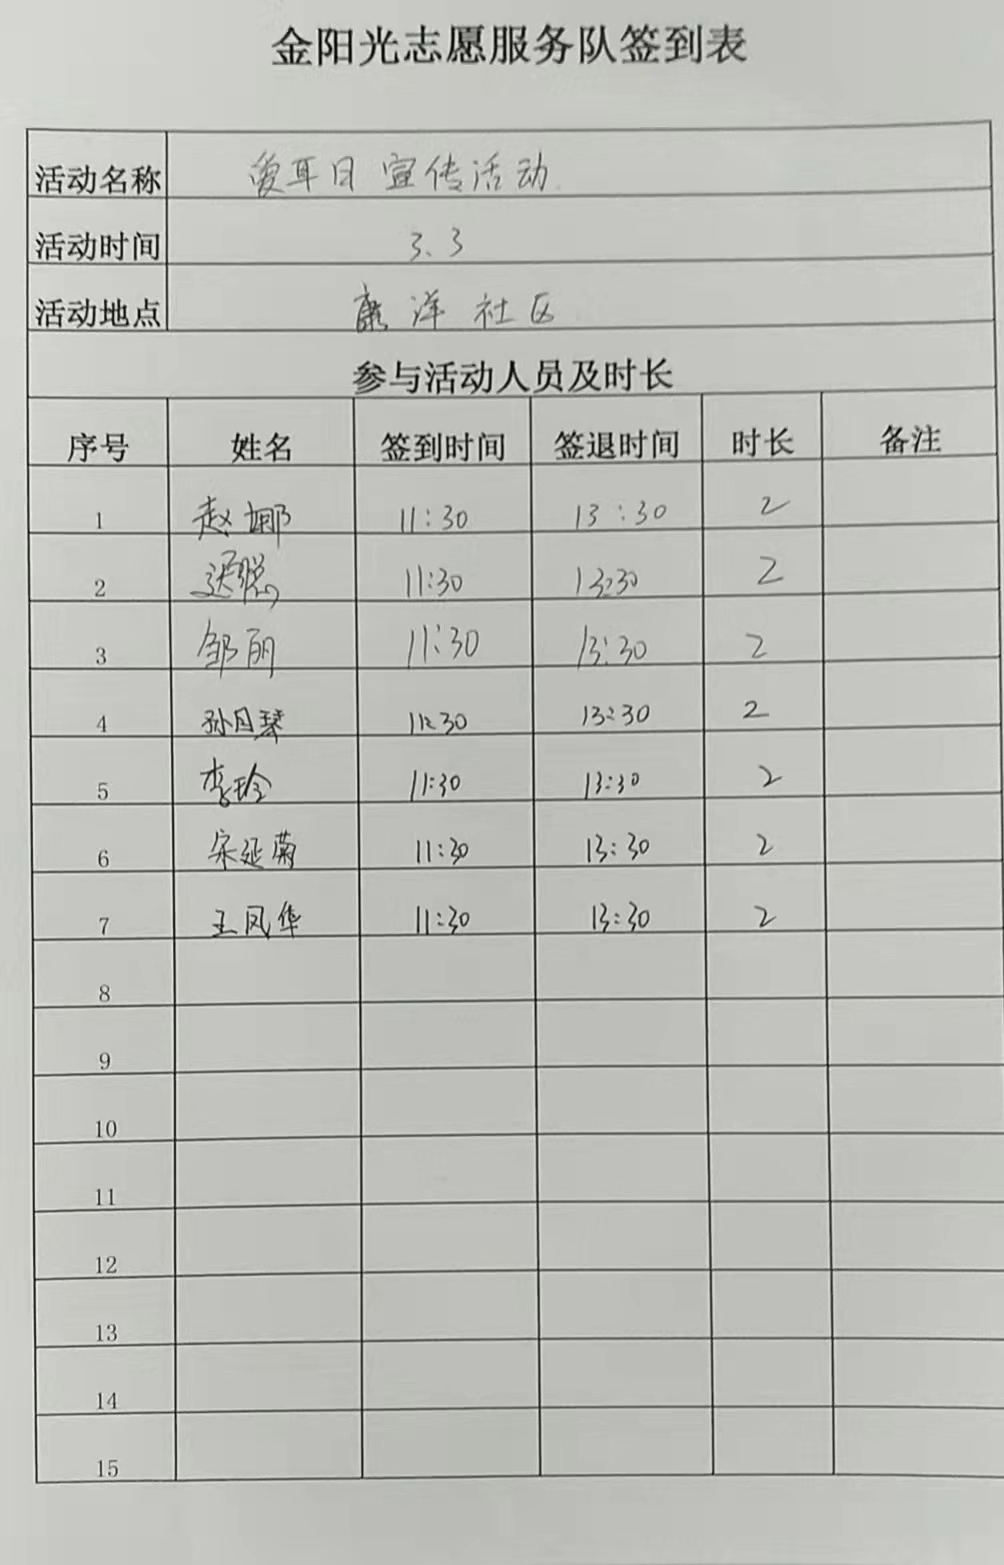 金阳光志愿服务队签到表
活动名称 爱耳日 宣传活动
活动时间 3.3
活动地点 康洋社区
参与活动人员及时长
序号 姓名 签到时间 签退时间 时长 备注
1 赵娜 11:30 13:30 2
2 迟聪 11:30 13:30 2
3 邹丽 11:30 13:30 2
4 孙月琴 11:30 13:30 2
5 李玲 11:30 13:30 2
6 宋延菊 11:30 13:30 2
7 王凤华 11:30 13:30 2
8
9
10
11
12
13
14
15